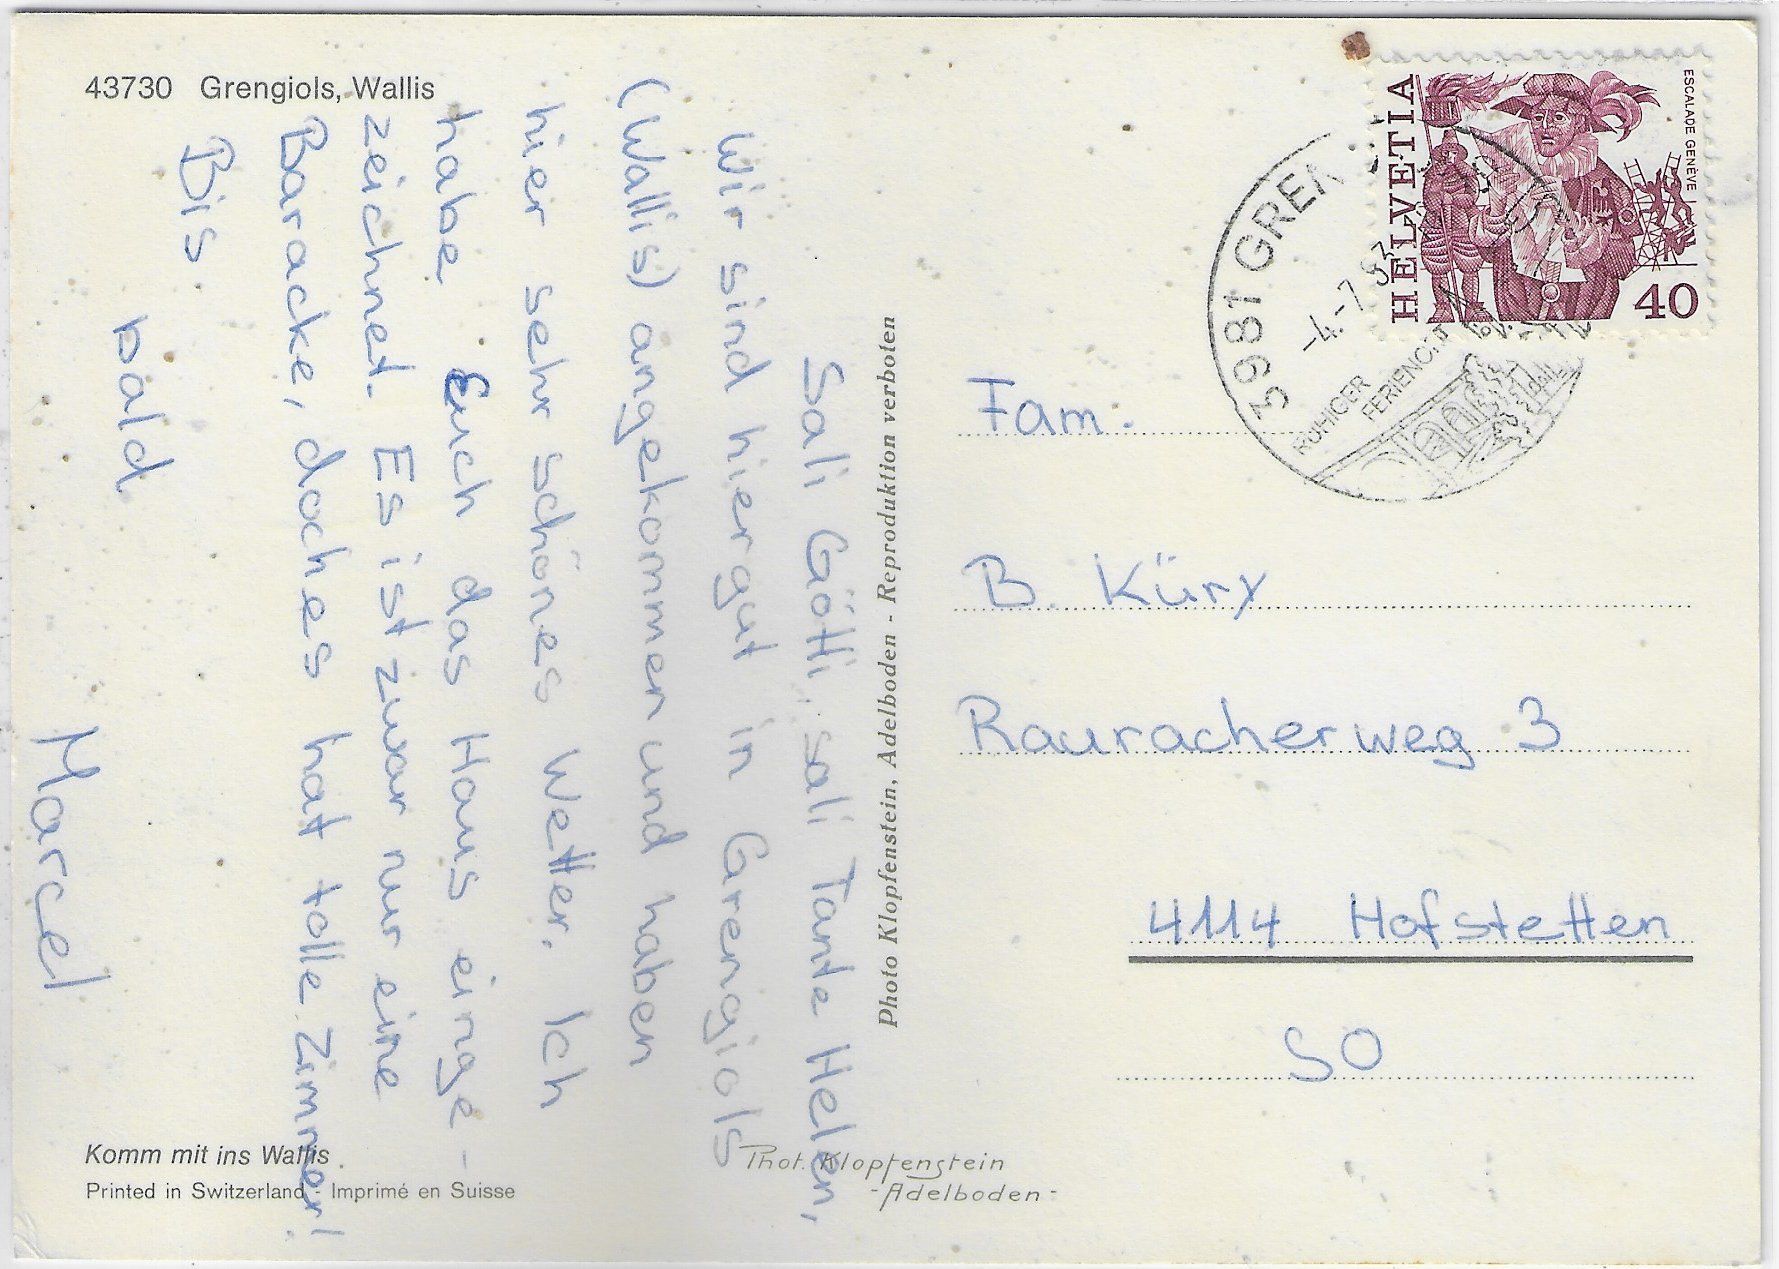 43730 Grengiols, Wallis
Sali Götti, sali Tante Helen,
Wir sind hier gut in Grengiols
(Wallis) angekommen und haben
hier sehr schönes Wetter. Ich
habe Euch das Haus einge-
zeichnet. Es ist zwar nur eine
Baracke, doch es hat tolle Zimmer!
Bis
bald
Marcel
Komm mit ins Wallis
Printed in Switzerland - Imprimé en Suisse
Photo Klopfenstein, Adelboden - Reproduktion verboten
Phot. Klopfenstein
- Adelboden -
HELVETIA
ESCALADE GENÈVE
40
3981 GREN
-4.-7.
RUHIGER
FERIENORT
Fam.
B. Küry
Rauracherweg 3
4114 Hofstetten
SO